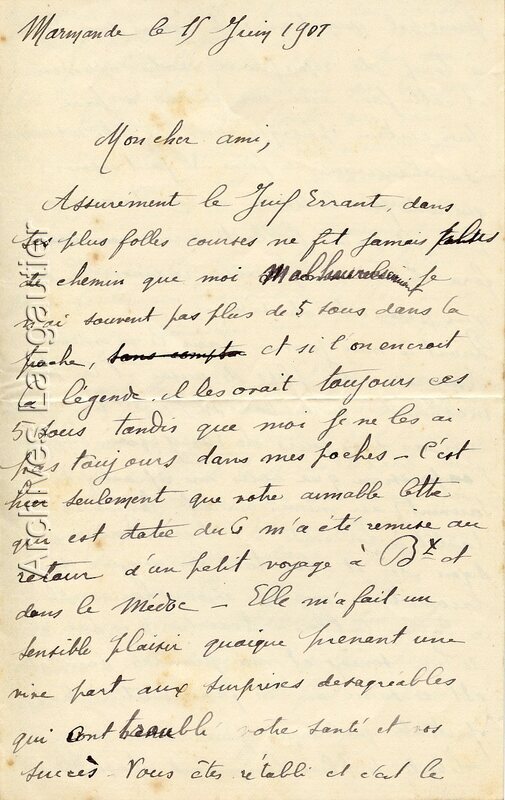 Marmande le 15 Juin 1901
Mon cher ami,
Assurement le Juif Errant, dans
ses plus folles courses ne fit jamais plus
de chemin que moi Malheureusement je
n'ai souvent pas plus de 5 sous dans la
poche, sans compter et si l'on en croit
la légende il les avait toujours ces
5 sous tandis que moi je ne les ai
pas toujours dans mes poches - C'est
hier seulement que votre aimable lettre
qui est datée du 6 m'a été remise au
retour d'un petit voyage à Bx et
dans le Médoc - Elle m'a fait un
sensible plaisir quoique prenant une
vive part aux surprises desagreables
qui ont troublé votre santé et vos
succès - Vous êtes rétabli et c'est le
Archives Langautier